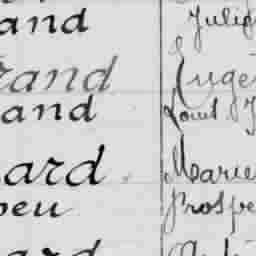 and Julie
rand Eugè
and Louis J
ard Marie
peu Prospe
ard